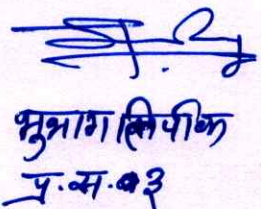 भुभाग लिपीक
प्र.स.०३